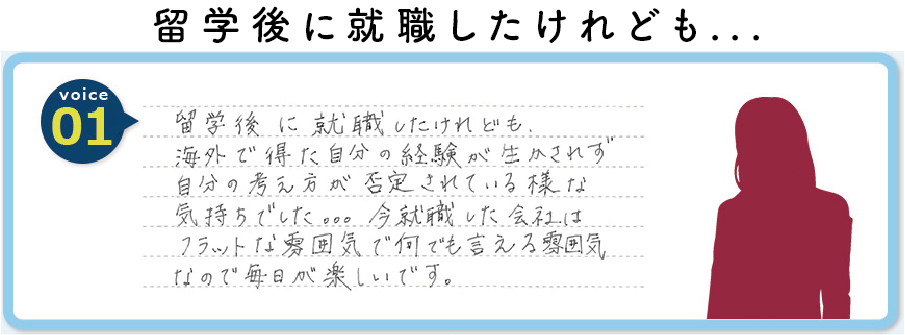 留学後に就職したけれども...
voice
01
留学後に就職したけれども、
海外で得た自分の経験が生かされず
自分の考え方が否定されている様な
気持ちでした。。。今就職した会社は
フラットな雰囲気で何でも言える雰囲気
なので毎日が楽しいです。